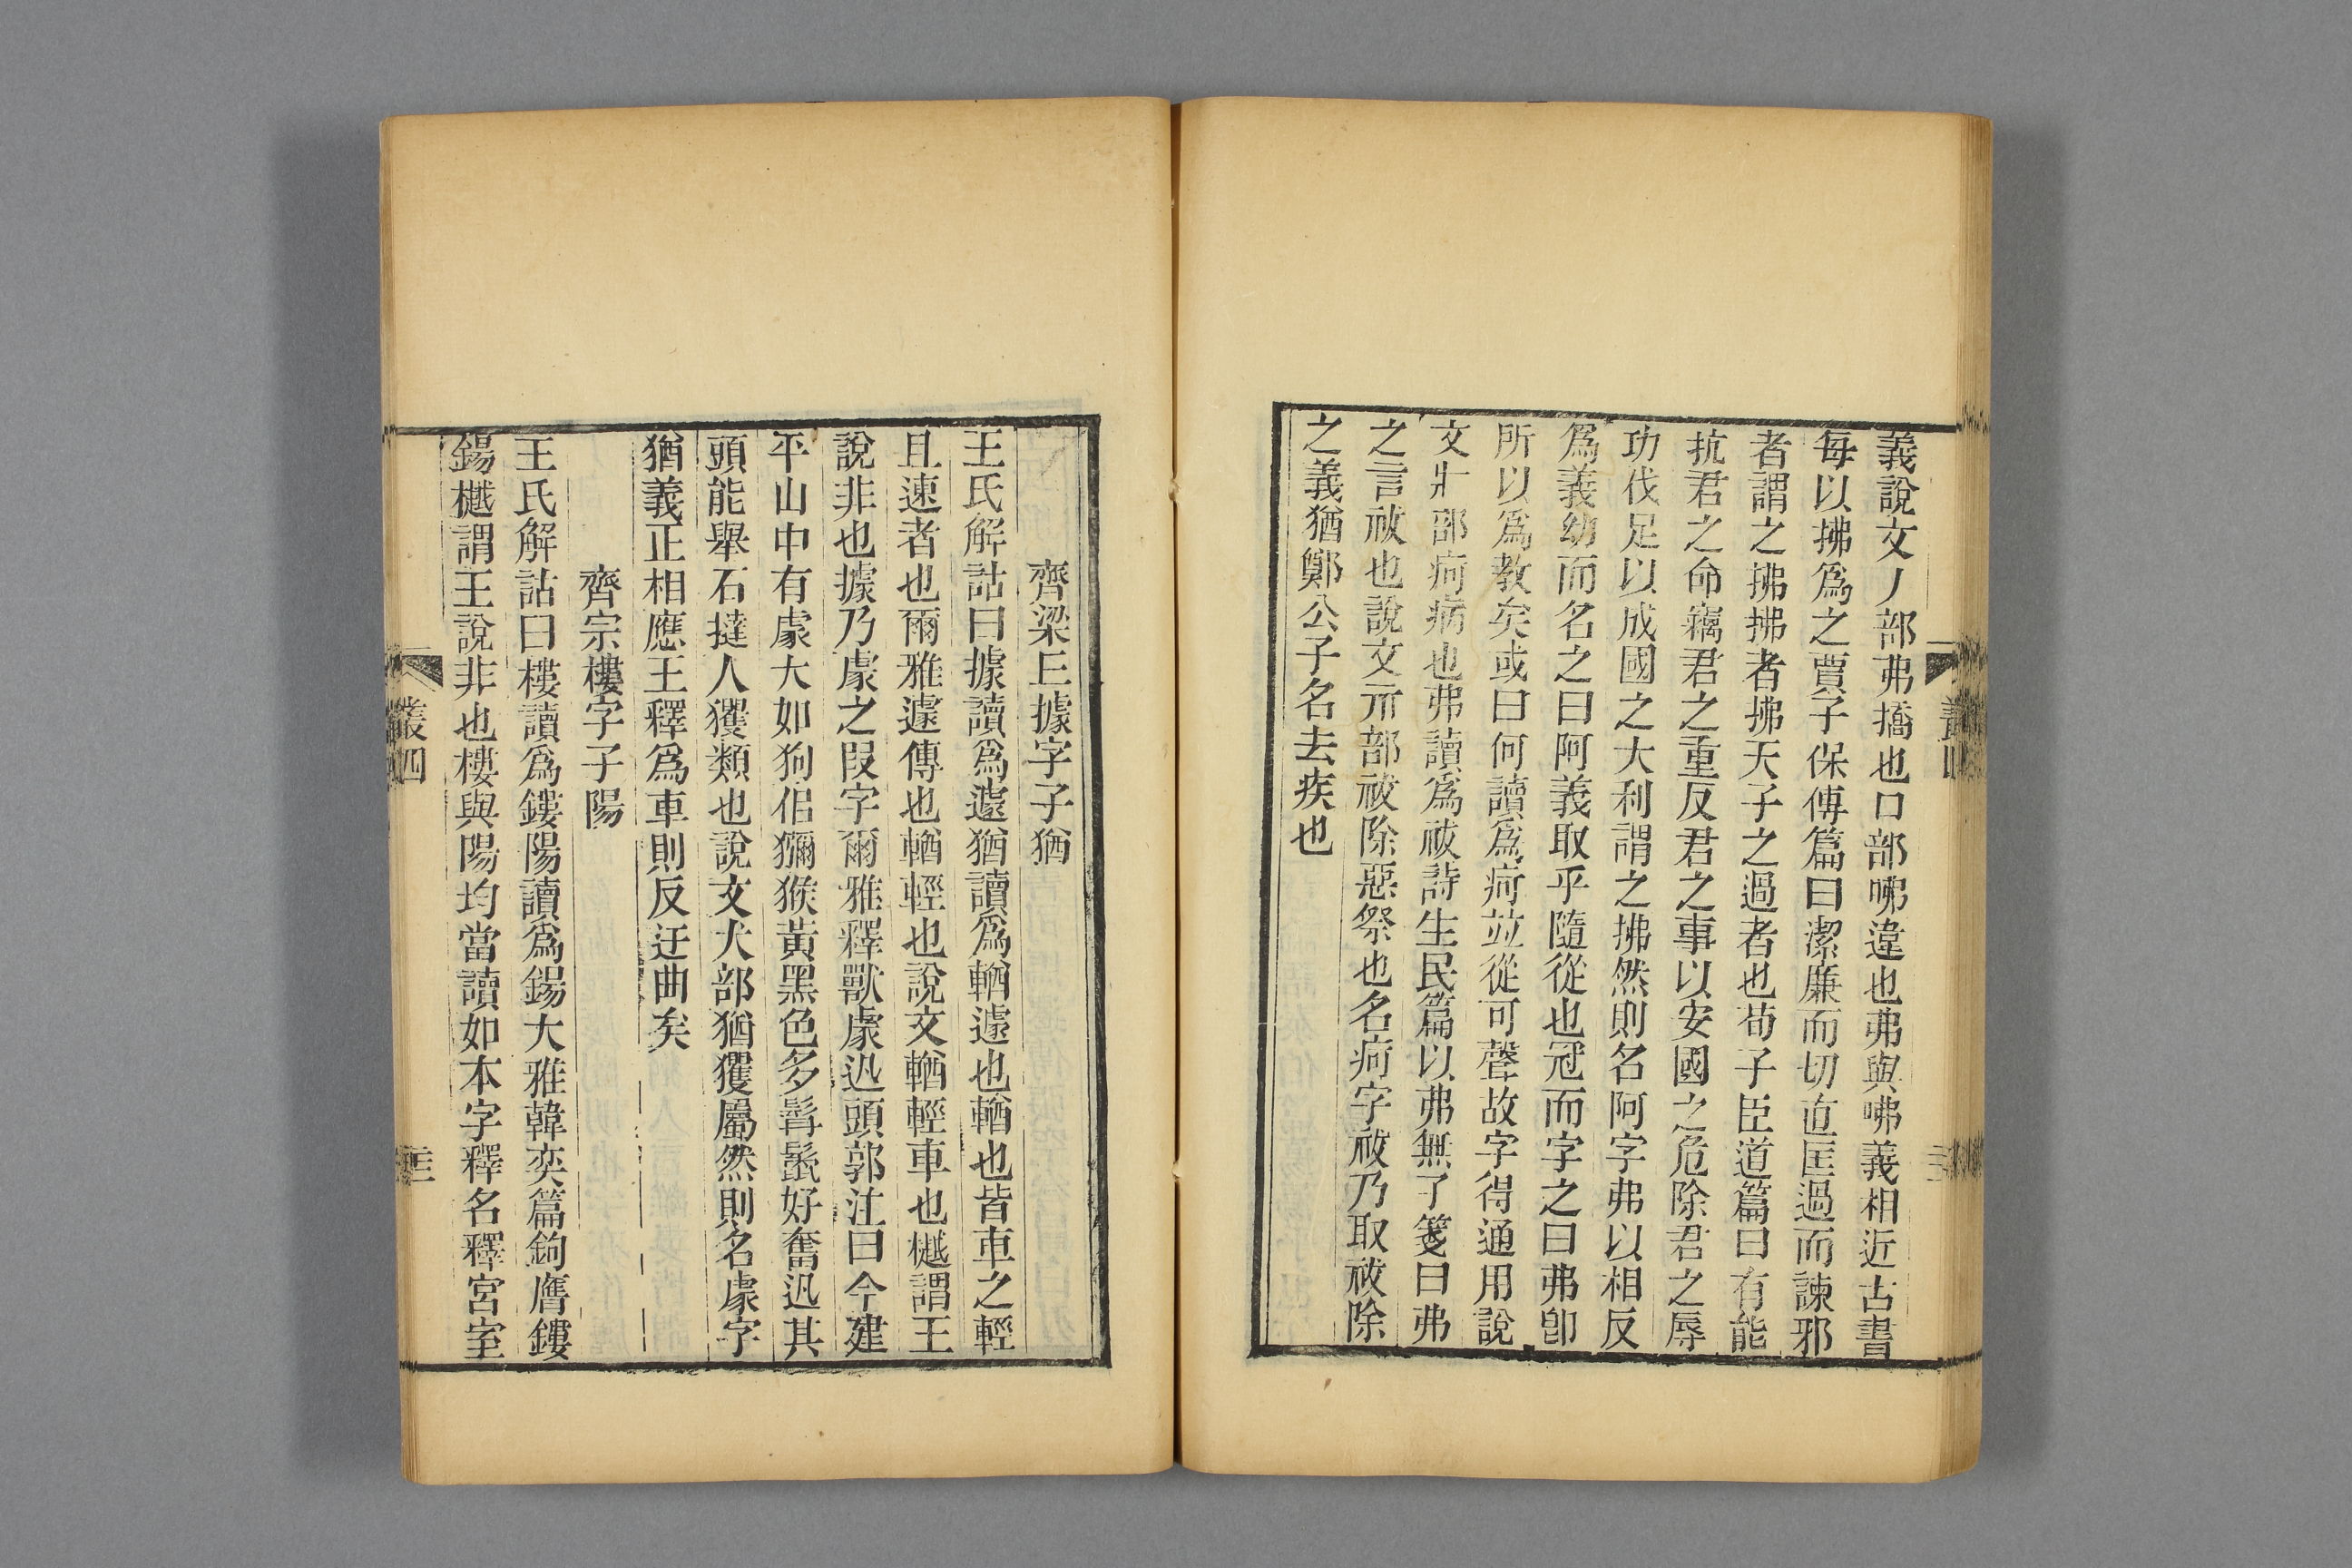 義說文丿部弗撟也口部咈違也弗與咈義相近古書
每以拂爲之賈子保傅篇曰潔廉而切直匡過而諫邪
者謂之拂拂者拂天子之過者也荀子臣道篇曰有能
抗君之命竊君之重反君之事以安國之危除君之辱
功伐足以成國之大利謂之拂然則名阿字弗以相反
爲義幼而名之曰阿義取乎隨從也冠而字之曰弗卽
所以爲教矣或曰何讀爲疴竝從可聲故字得通用說
文疒部疴病也弗讀爲祓詩生民篇以弗無子箋曰弗
之言祓也說文示部祓除惡祭也名疴字祓乃取祓除
之義猶鄭公子名去疾也
齊梁丘據字子猶
王氏解詁曰據讀爲遽猶讀爲輶遽也輶也皆車之輕
且速者也爾雅遽傳也輶輕也說文輶輕車也樾謂王
說非也據乃豦之叚字爾雅釋獸豦迅頭郭注曰今建
平山中有豦大如狗似獼猴黃黑色多髯鬣好奮迅其
頭能舉石擿人玃類也說文犬部猶玃屬然則名豦字
猶義正相應王釋爲車則反迂曲矣
齊宗樓字子陽
王氏解詁曰樓讀爲鏤陽讀爲鍚大雅韓奕篇鉤膺鏤
鍚樾謂王說非也樓與陽均當讀如本字釋名釋宮室
叢四